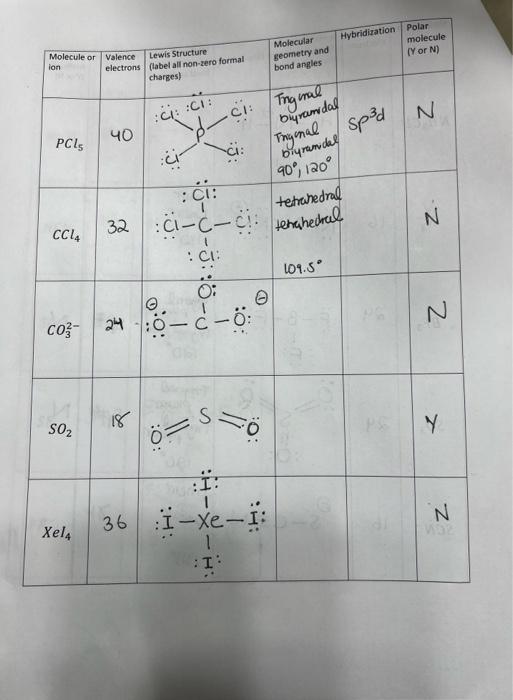 Molecule or ion
Valence electrons
Lewis Structure (label all non-zero formal charges)
Molecular geometry and bond angles
Hybridization
Polar molecule (Y or N)
PCl5
40
:Cl: :Cl: Cl:
P
:Cl Cl:
Trigonal
bipyramidal
Trigonal
bipyramidal
90°, 120°
sp³d
N
CCl4
32
:Cl:
:Cl-C-Cl:
:Cl:
tetrahedral
tetrahedral
109.5°
N
CO3²⁻
24
O:
⊖ ⊖
:O-C-O:
N
SO2
18
O=S=O
Y
XeI4
36
:I:
:I-Xe-I:
:I:
N